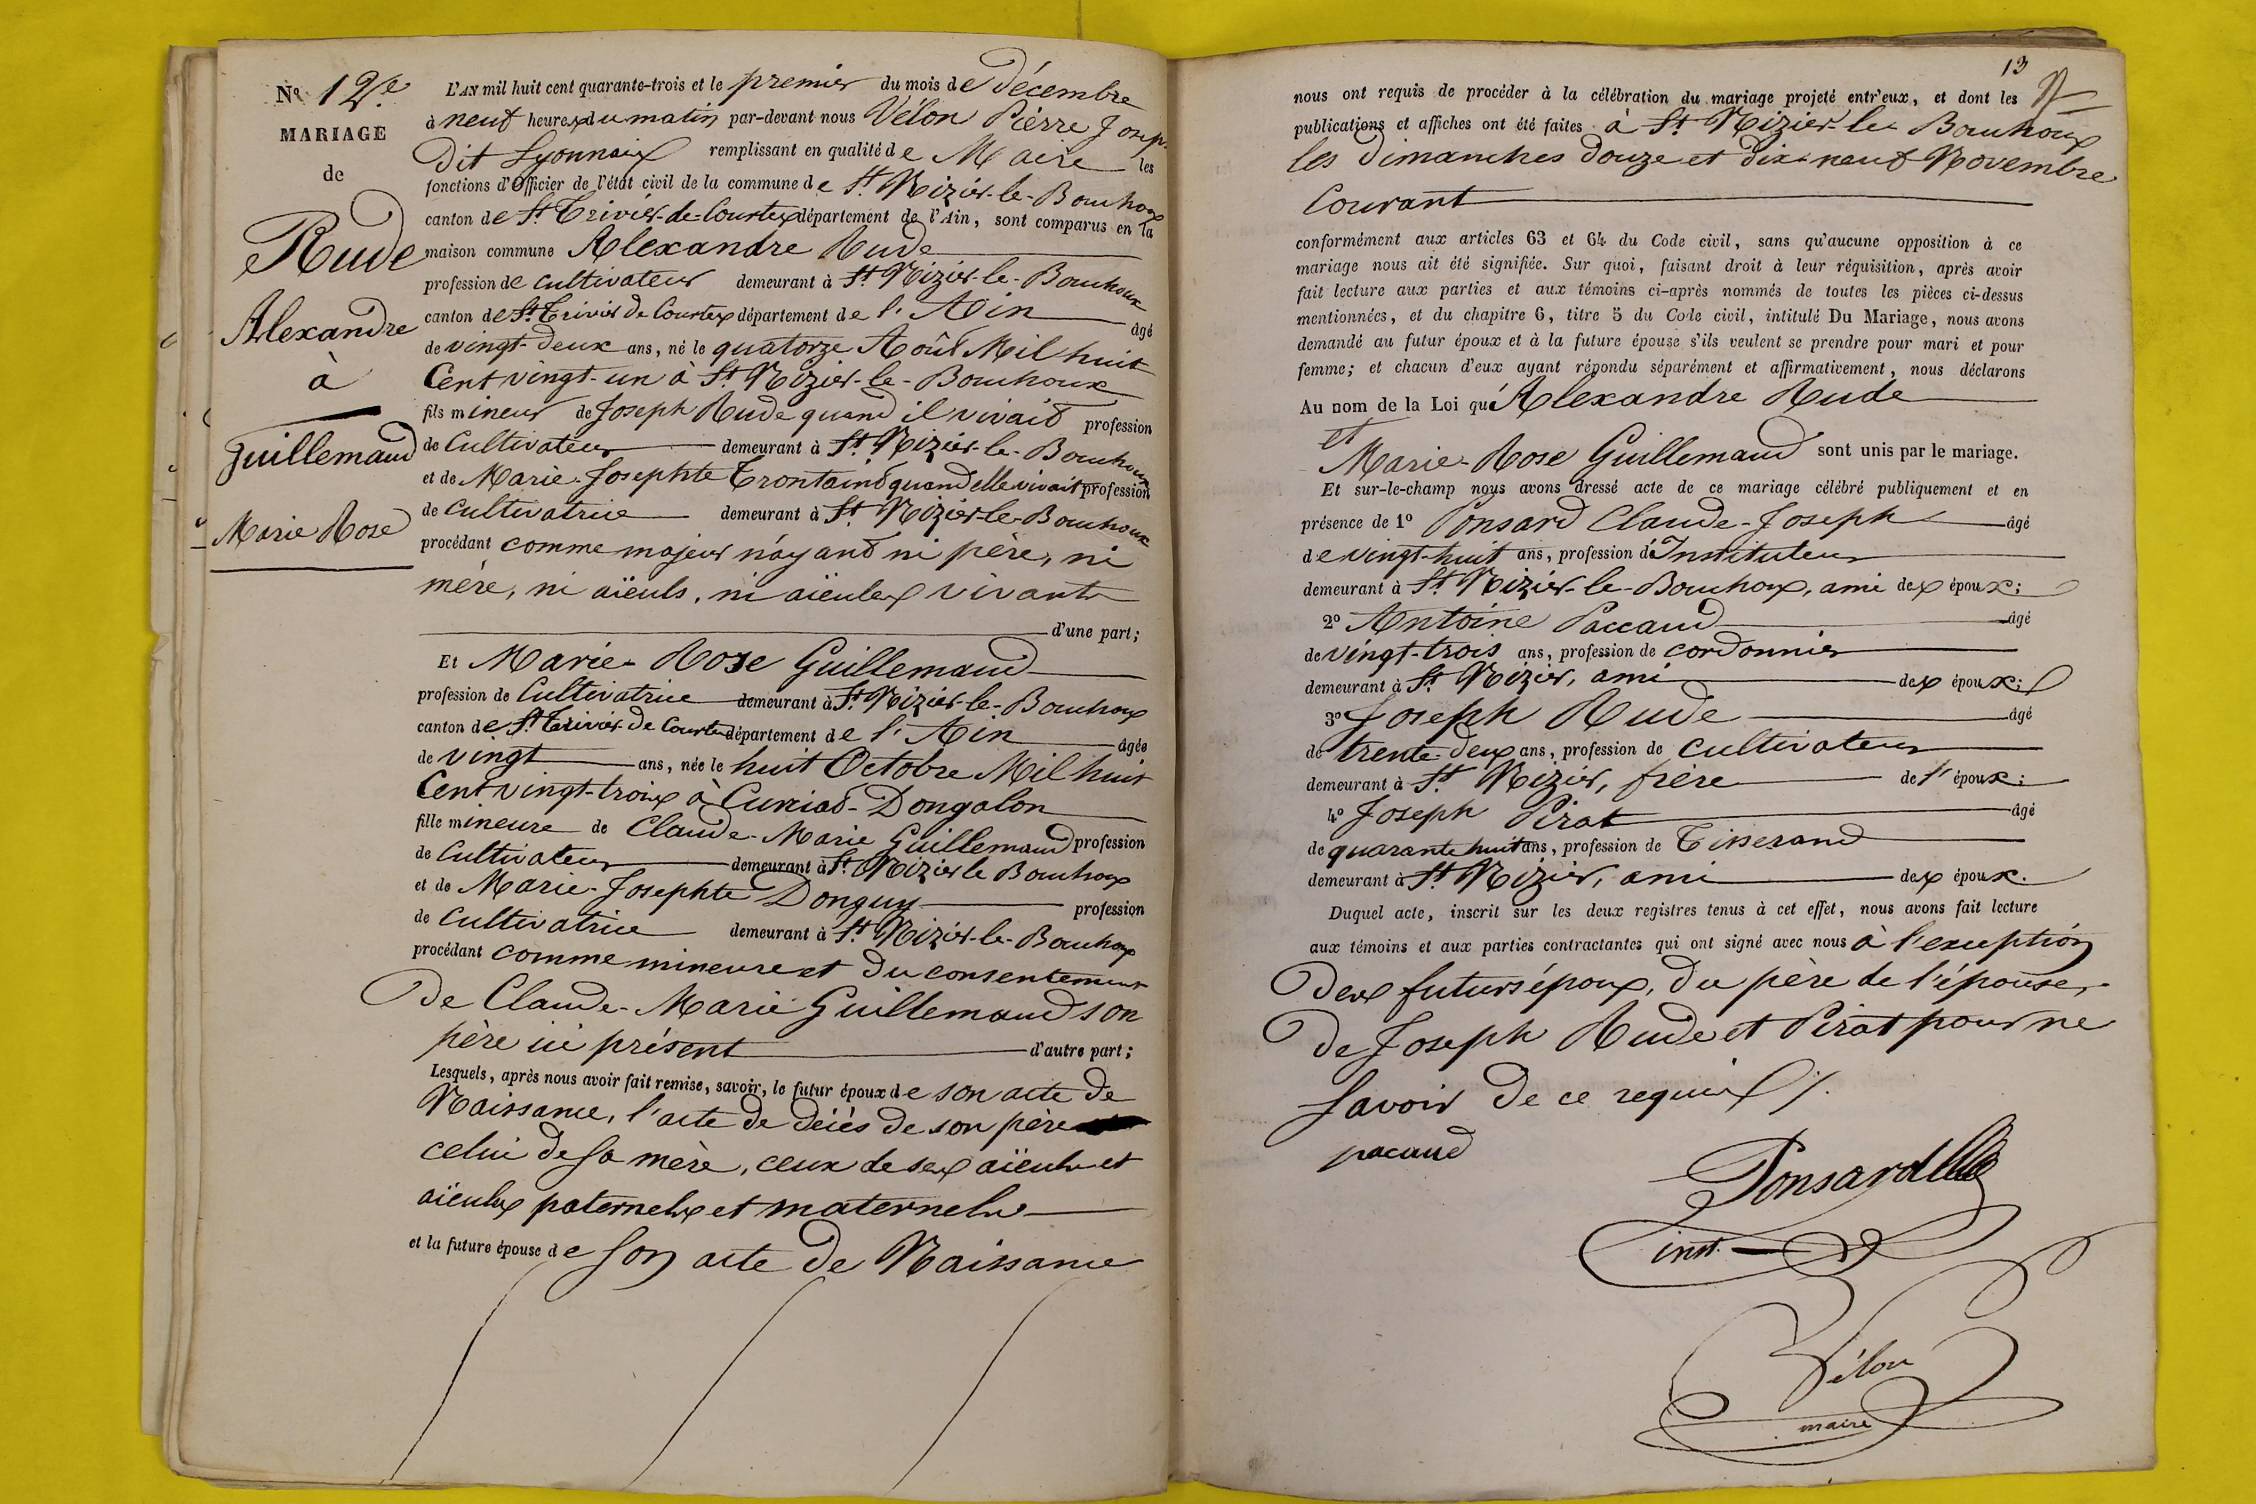 Nº 12e
MARIAGE
de
Rude
Alexandre
à
Guillemaud
Marie Rose
L'AN mil huit cent quarante-trois et le premier du mois de Décembre
à neuf heures du matin par-devant nous Vélon Pièrre Josep.
Dit Lyonnais remplissant en qualité de Maire les
fonctions d'Officier de l'état civil de la commune de St. Nizier-le-Bouchoux
canton de St. Trivier-de-Courtes département de l'Ain, sont comparus en la
maison commune Alexandre Rude
profession de cultivateur demeurant à St. Nizier-le-Bouchoux
canton de St. Trivier de Courtes département de l'Ain âgé
de vingt-deux ans, né le quatorze Août Mil huit
Cent vingt-un à St. Nizier-le-Bouchoux
fils mineur de Joseph Rude quand il vivait profession
de Cultivateur demeurant à St. Nizier-le-Bouchoux
et de Marie-Josephte Trontaint quand elle vivait profession
de Cultivatrice demeurant à St. Nizier-le-Bouchoux
procédant comme majeur n'ayant ni père, ni
mère, ni aïeuls, ni aïeules vivants
d'une part;
Et Marie-Rose Guillemaud
profession de Cultivatrice demeurant à St. Nizier-le-Bouchoux
canton de St. Trivier de Courtes département de l'Ain âgée
de vingt ans, née le huit Octobre Mil huit
Cent vingt-trois à Curciat-Dongalon
fille mineure de Claude-Marie Guillemaud profession
de Cultivateur demeurant à St. Nizier le Bouchoux
et de Marie-Josephte Donguy profession
de Cultivatrice demeurant à St. Nizier-le-Bouchoux
procédant comme mineure et du consentement
De Claude-Marie Guillemaud son
père ici présent d'autre part;
Lesquels, après nous avoir fait remise, savoir, le futur époux de son acte de
Naissance, l'acte de décès de son père
celui de sa mère, ceux de ses aïeuls et
aïeules paternels et maternels
et la future épouse de son acte de Naissance
13
nous ont requis de procéder à la célébration du mariage projeté entr'eux, et dont les
publications et affiches ont été faites à St. Nizier-le-Bouhoux
les Dimanches Douze et Dix-neuf Novembre
Courant
conformément aux articles 63 et 64 du Code civil, sans qu'aucune opposition à ce
mariage nous ait été signifiée. Sur quoi, faisant droit à leur réquisition, après avoir
fait lecture aux parties et aux témoins ci-après nommés de toutes les pièces ci-dessus
mentionnées, et du chapitre 6, titre 5 du Code civil, intitulé Du Mariage, nous avons
demandé au futur époux et à la future épouse s'ils veulent se prendre pour mari et pour
femme; et chacun d'eux ayant répondu séparément et affirmativement, nous déclarons
Au nom de la Loi qu'Alexandre Rude
et
Marie-Rose Guillemaud sont unis par le mariage.
Et sur-le-champ nous avons dressé acte de ce mariage célébré publiquement et en
présence de 1º Ponsard Claude-Joseph âgé
de vingt-huit ans, profession d'Instituteur
demeurant à St. Nizier-le-Bouchoux, ami des époux;
2º Antoine Paccaud âgé
de vingt-trois ans, profession de cordonnier
demeurant à St. Nizier, ami des époux;
3º Joseph Rude âgé
de trente-deux ans, profession de cultivateur
demeurant à St. Nizier, frère de l'époux;
4º Joseph Pirat âgé
de quarante huit ans, profession de Tisserand
demeurant à St. Nizier, ami des époux.
Duquel acte, inscrit sur les deux registres tenus à cet effet, nous avons fait lecture
aux témoins et aux parties contractantes qui ont signé avec nous à l'exception
Des futurs époux, du père de l'épouse,
De Joseph Rude et Pirat pour ne
savoir de ce requis /.
pacaud
Ponsard
inst.
Vélon
maire